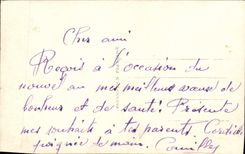 Cher ami
Reçois à l'occasion du
nouvel an mes meilleurs vœux de
bonheur et de santé. Présente
mes souhaits à tes parents. Cordiale
poignée de main.